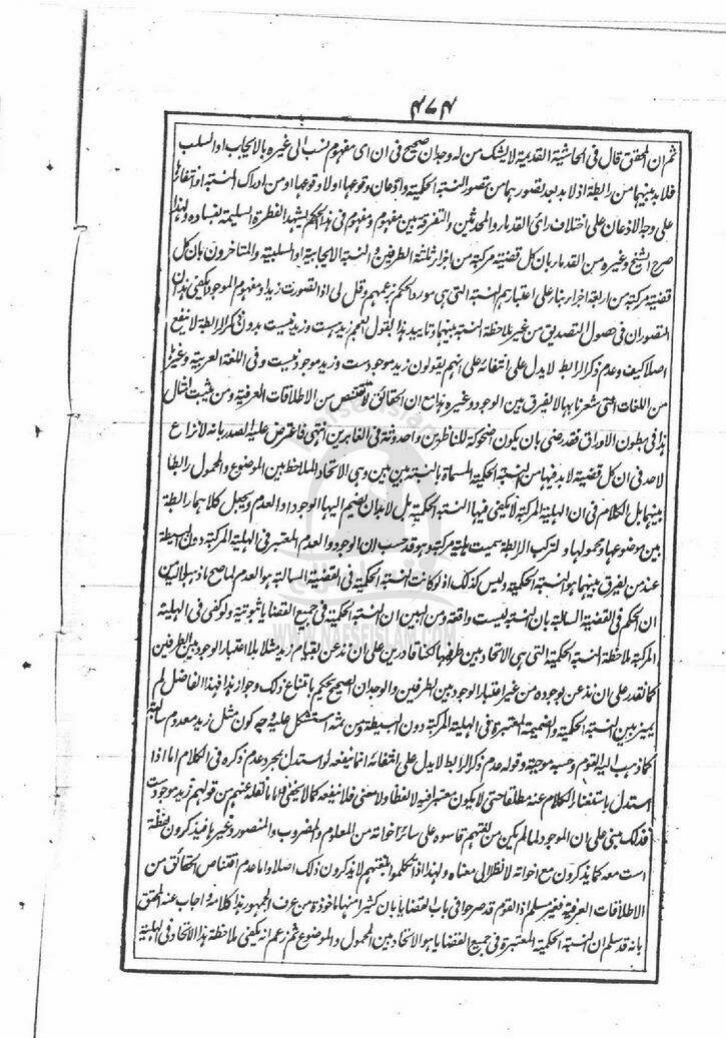 ۴۷۴
ثم ان المحقق قال فى الحاشية القديمة لا يشك من له وجدان صحيح فى ان اى مفهوم نسب الى غيره بالايجاب او السلب
فلا بد بينهما من رابطة اذ لا بد بعد تصورهما من تصور النسبة الحكمية واذعان وقوعها او لا وقوعها او من ادراك النسبة او انتفائها
على وجه الاذعان على اختلاف رائ القدماء والمحدثين والتفرقة بين مفهوم ومفهوم فى هذا الحكم يشهد الفطرة السليمة بفساده ولهذا
صرح الشيخ وغيره من القدماء بان كل قضية مركبة من اجزاء ثلثة الطرفين والنسبة الايجابية او السلبية والمتاخرون بان كل
قضية مركبة من اربعة اجزاء بناء على اعتبارهم النسبة التى هى مورد الحكم بزعمهم وقل لى اذا تصورت زيدا ومفهوم الموجود يكفى هذان
المتصوران فى حصول التصديق من غير ملاحظة النسبة بينهما وتاييد هذا بقول العجم زيد هست وزيد نيست بدون ذكر الرابطة لا ينفع
اصلا كيف وعدم ذكر الرابط لا يدل على انتفائه على انهم يقولون زيد موجود ست وزيد موجود نيست وفى اللغة العربية وغيرها
من اللغات التى شعرنا بها لا يفرق بين الوجود وغيره هذا مع ان الحقائق لا تقتنص من الاطلاقات العرفية ومن يثبت امثال
هذا فى بطون الاوراق فقد رضى بان يكون ضحوكة للناظرين واحدوثة فى الغابرين انتهى فاعترض عليه الصدر بانه لا نزاع
لاحد فى ان كل قضية لا بد فيها من النسبة الحكمية المسماة بالنسبة بين بين وهى الاتحاد الملاحظ بين الموضوع والمحمول رابطا
بينهما بل الكلام فى ان الهلية المركبة لا يكفى فيها النسبة الحكمية بل لا بد ان يضم اليها الوجود او العدم ويجعل كلاهما رابطة
بين موضوعها ومحمولها ولتركب الرابطة سميت هلية مركبة وهو قد حسب ان الوجود والعدم المعتبر فى الهلية المركبة دون البسيطة
عند من يفرق بينهما هو النسبة الحكمية وليس كذلك اذ لو كانت النسبة الحكمية فى القضية السالبة هو العدم لما صح
ان الحكم فى القضية السالبة بان النسبة ليست واقعة ومن البين ان النسبة الحكمية فى جميع القضايا ثبوتية ولو كفى فى الهلية
المركبة ملاحظة النسبة الحكمية التى هى الاتحاد بين طرفيها لكنا قادرين على ان نذعن بقيام زيد مثلا بلا اعتبار الوجود بين الطرفين
كما نقدر على ان نذعن بوجوده من غير اعتبار الوجود بين الطرفين والوجدان الصحيح يحكم بامتناع ذلك وجواز هذا فهذا الفاضل لم
يميز بين النسبة الحكمية والضميمة المعتبرة فى الهلية المركبة دون البسيطة ومن ثمه استشكل عليه وجه كون مثل زيد معدوم سالبة
كما ذهب اليه القوم وحسبه موجبة وقوله عدم ذكر الرابط لا يدل على انتفائه انما ينفعه لو استدل بمجرد عدم ذكره فى الكلام اما اذا
استدل باستغناء الكلام عنه مطلقا حتى لا يكون معتبرا فيه لا لفظا ولا معنى فلا ينفعه كما لا يخفى واما ما نقله عنهم من قولهم زيد موجود ست
فذلك مبنى على ان الموجود لما لم يكن من لغتهم قاسوه على سائر اخواته من المعلوم والمضروب والمنصور وغيرها فيذكرون لفظة
است معه كما يذكرون مع اخواته لا نظرا الى معناه ولهذا اذا تكلموا بلغتهم لا يذكرون ذلك اصلا واما عدم اقتناص الحقائق من
الاطلاقات العرفية فغير مسلم اذ القوم قد صرحوا فى باب القضايا بان كثيرا منها ماخوذة من عرف الجمهور هذا كلامه واجاب عنه المحقق
بانه قد سلم ان النسبة الحكمية المعتبرة فى جميع القضايا هو الاتحاد بين المحمول والموضوع ثم زعم انه يكفى ملاحظة هذا الاتحاد فى الهلية
WWW.NAFSEISLAM.COM